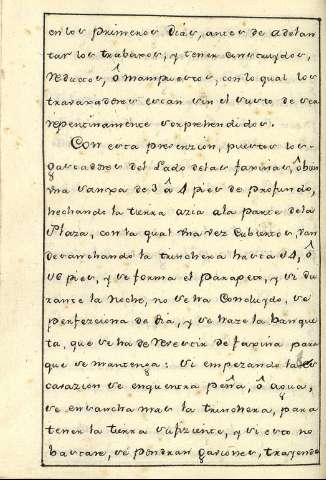 en los primeros dias, antes de adelan
tar los trabaxos, y tener Construydos,
Reductos, ô mampuestos, con lo qual los
travaxadores estan sin el susto de ser
repentinamente sorprehendidos.
Con esta prevenzion, puestos los
gastadores del Lado de las faxinas, ô
una sanxa de 3 â 4 pies de profundo,
hechando la tierra azia a la parte de la
Plaza, con la qual una vez Cubiertos, van
desanchando la trinchera hasta 14, ô
pies, y se forma el Parapeto, y si du
rante la Noche, no se ha Concluydo, se
perferziona de dia, y se haze la banque
ta, que se ha de Revestir de faxina para
que se mantenga: si empezando la ex
cabazion se enquentra peña, ô agua,
se ensancha mas la trinchera, para
tener la tierra sufiziente, y si esto no
bastare, se pondran gaviones, trayendo